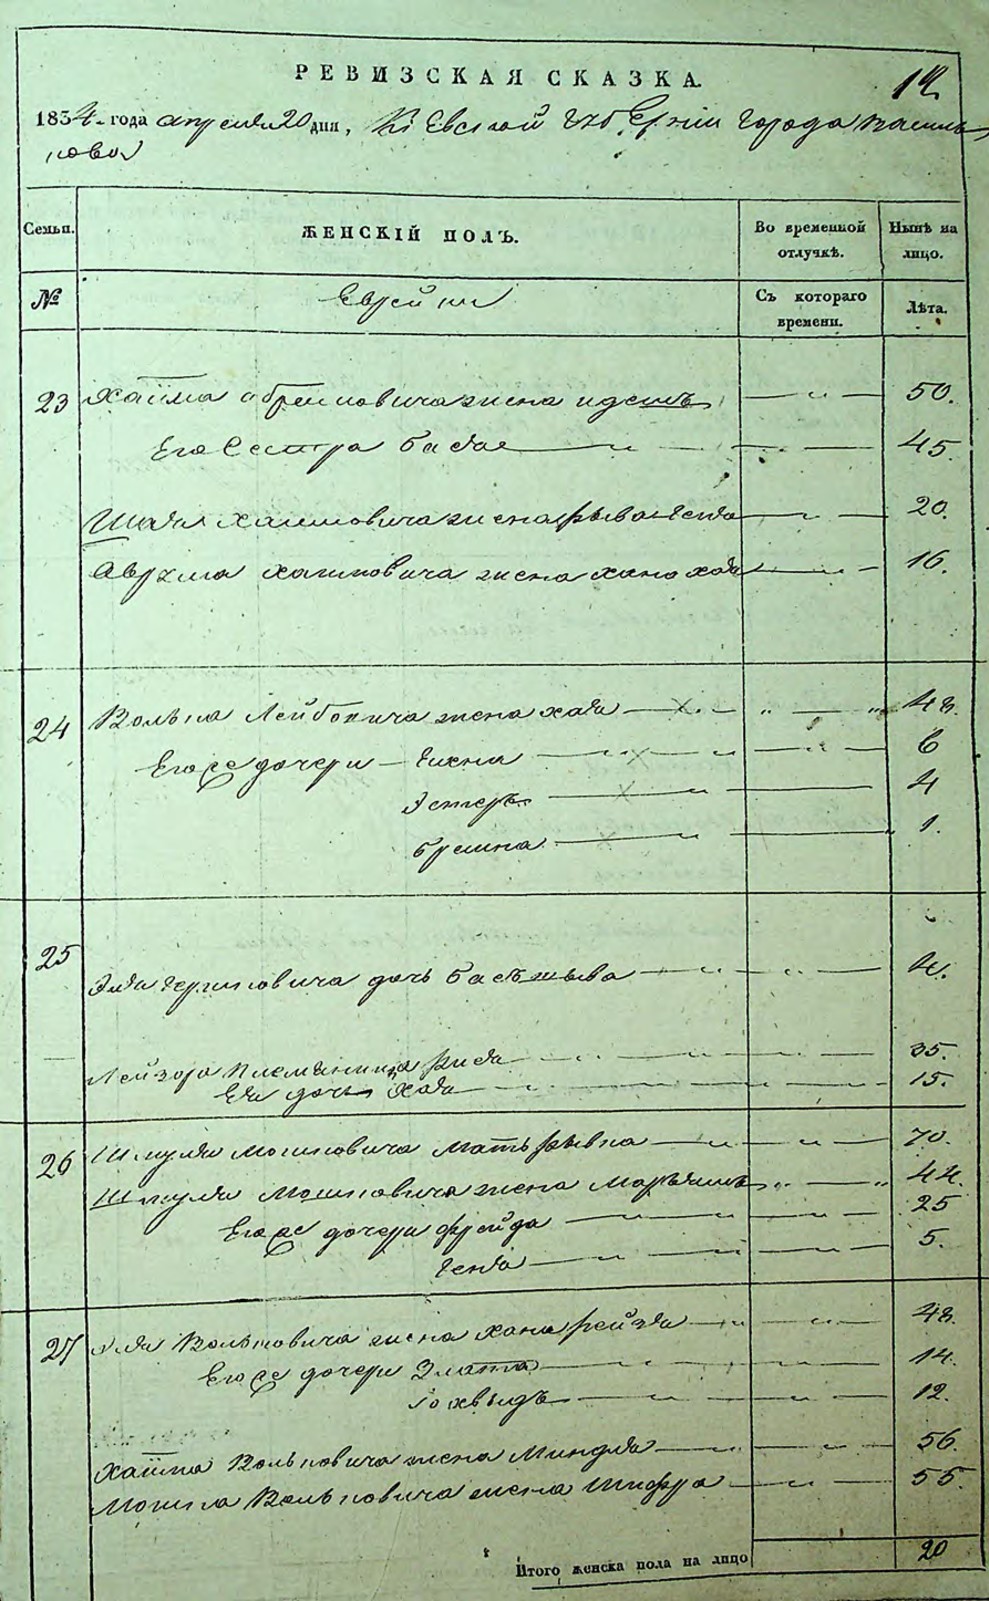 14
РЕВИЗСКАЯ СКАЗКА.
1834 года апреля 20 дня, Киевской губернии города Василь
кова
Семьи. ЖЕНСКІЙ ПОЛЪ. Во временной отлучкѣ. Нынѣ на лицо.
№ Еврейки Съ котораго времени. Лѣта.
23 Хаима Абрамовича жена Идесъ 50.
Его Сестра Бася 45.
Хаимовича жена 20.
Аврума Хаимовича жена Хана Хая 16.
24 Волька Лейбовича жена Хая 48.
Его же дочери 6
Эстеръ 4
1.
25 дочь Басъ Шыва 4.
Лейзора племянница 35.
Ея дочь Хая 15.
26 Шмуля Мошковича мать Рывка 70.
Шмуля Мошковича жена Маръямъ 44.
Его же дочери Фрейда 25
Геня 5.
27 Вольковича жена Хана Рейзя 48.
Его же дочери Злата 14.
12.
Хаима Вольковича жена Миндля 56.
Мошка Вольковича жена Шифра 55.
Итого женска пола на лицо 20